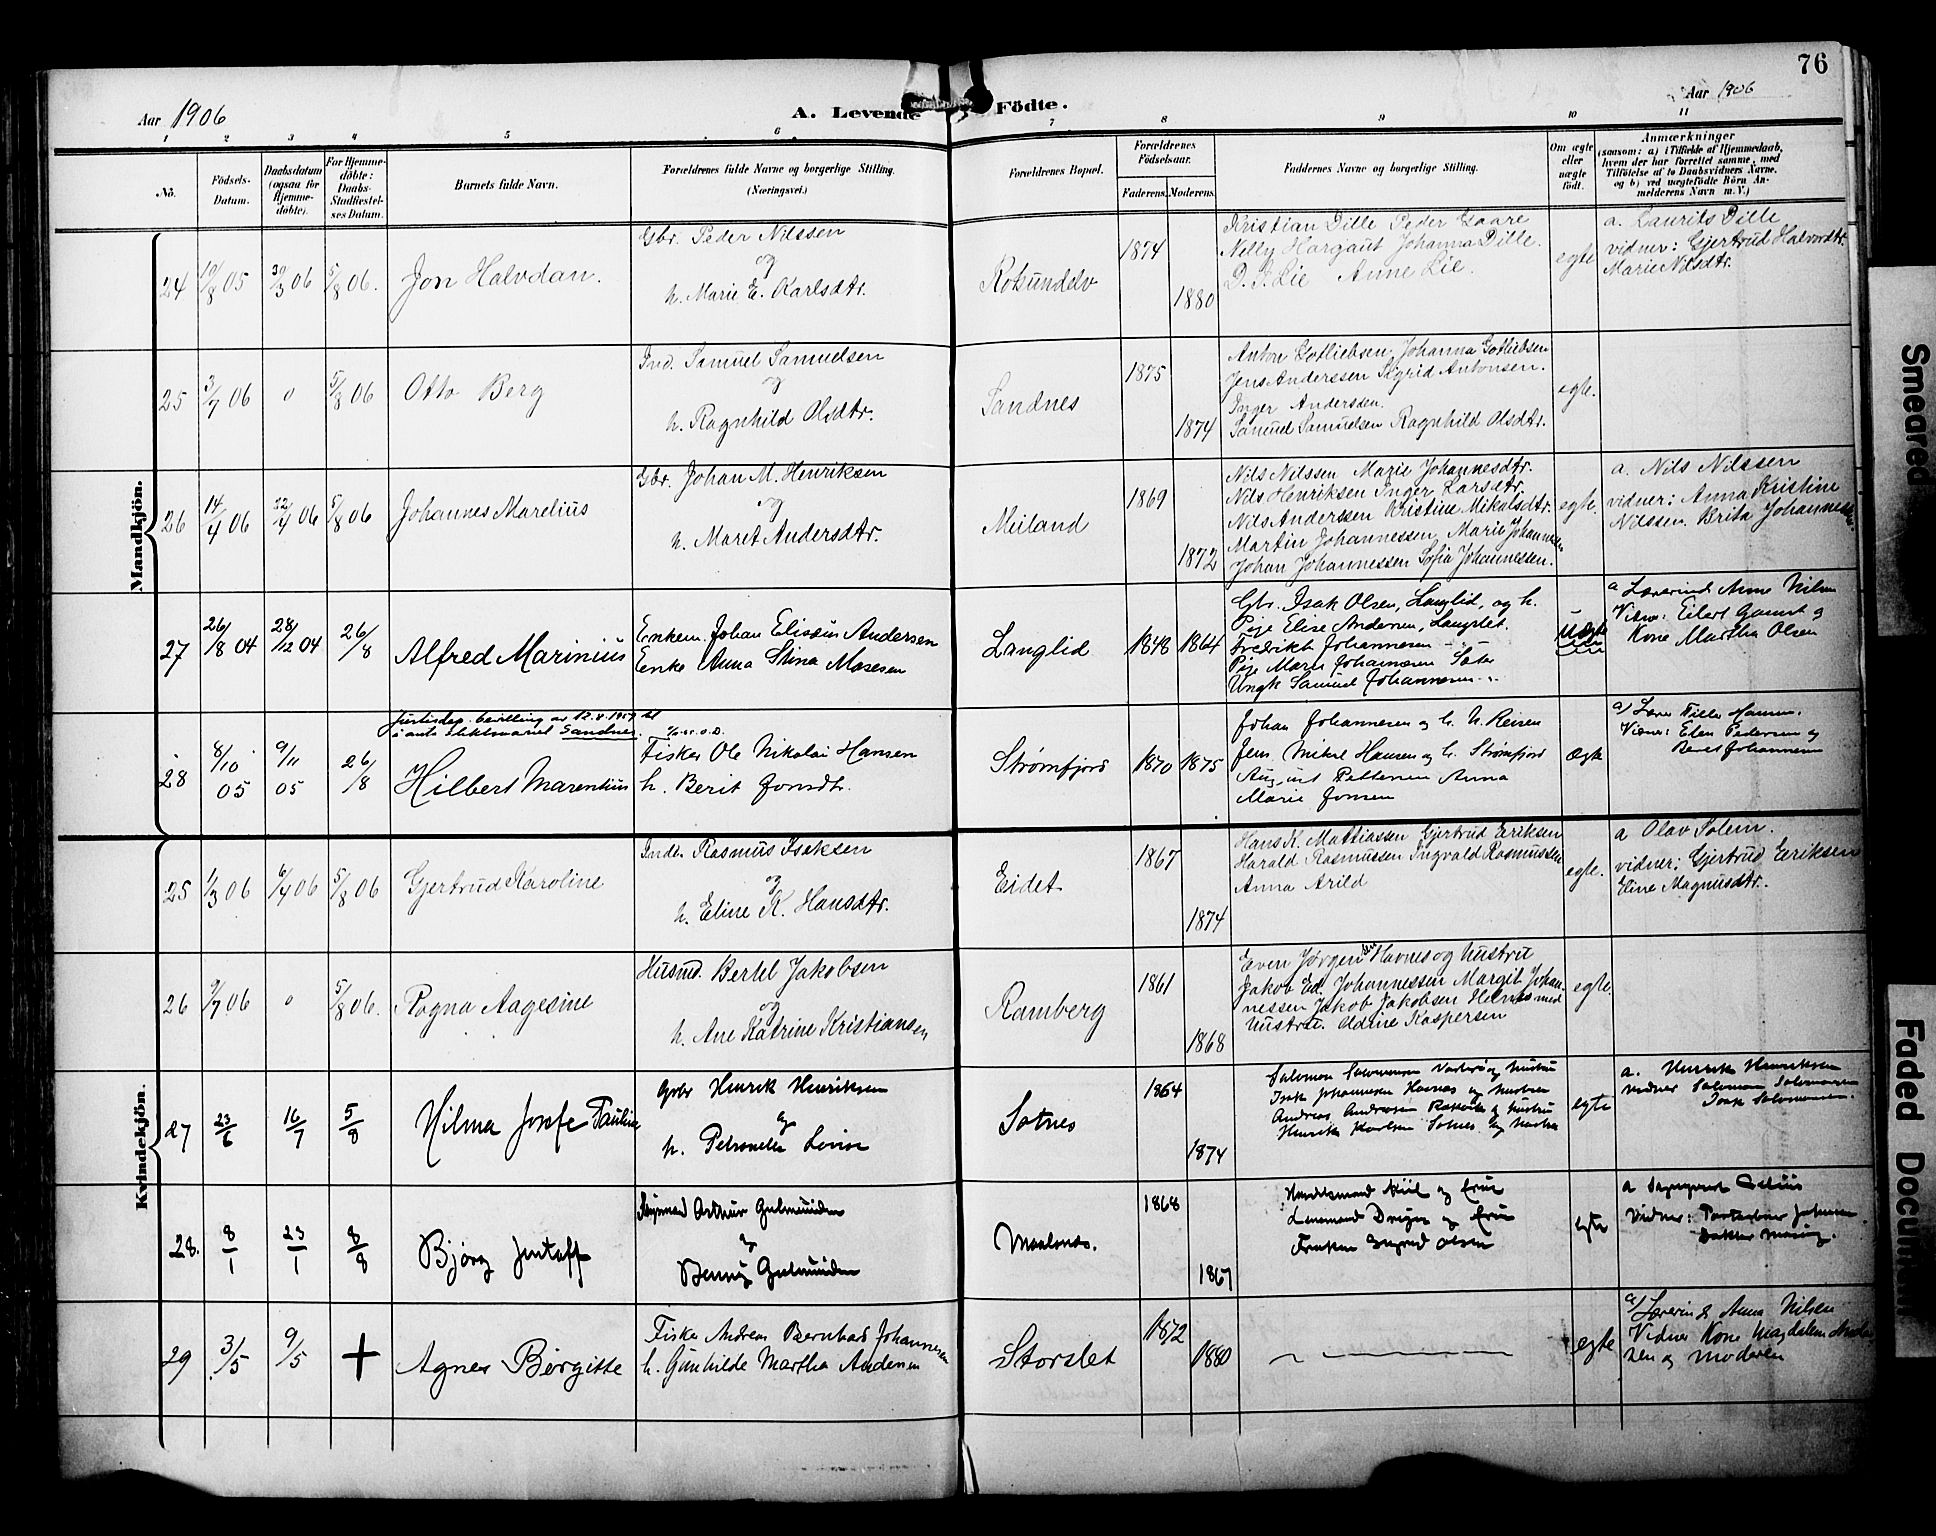 76
Aar 1906
A. Levende Födte.
Aar 1906
1 2 3 4 5 6 7 8 9 10 11
No.
Födsels-Datum.
Daabsdatum (ogsaa for Hjemme-döbte).
For Hjemme-döbte: Daabs-Stadfæstel-ses Datum.
Barnets fulde Navn.
Forældrenes fulde Navne og borgerlige Stilling.
(Næringsvei.)
Forældrenes Bopæl.
Forældrenes Födselsaar.
Faderens. Moderens.
Faddernes Navne og borgerlige Stilling.
Om ægte eller uægte födt.
Anmærkninger
(saasom: a) i Tilfælde af Hjemmedaab, hvem der har forrettet samme, med Tilföielse af to Daabsvidners Navne, og b) ved uægtefödte Börn An-melderens Navn m. V.)
Mandkjön.
24 10/8 05 30/3 06 5/8 06. Jon Halvdan.
Gbr. Peder Nilssen
og
h. Marie E. Karlsdtr.
Rotsundelv 1874 1880
Kristian Dille Peder Gaare
Nelly Hargaut Johanna Dille.
D. S. Lie Anne Lie.
egte
a. Laurits Dille
vidner: Gjertrud Halvordtr.
Marie Nilsdtr.
25 3/7 06 0 5/8 06 Otto Berg
Ind. Samuel Samuelsen
og
h. Ragnhild Olsdtr.
Sandnes 1875 1874
Anton Gotliebsen, Johanna Gotliebsen
Jens Anderssen Sigrid Antonsen.
Inger Anderssen.
Samuel Samuelsen Ragnhild Olsdtr.
egte.
26 14/4 06 22/4 06 5/8 06 Johannes Marelius
Gbr. Johan M. Henriksen
og
h. Maret Andersdtr.
Meiland 1869 1872
Nils Nilssen Marie Johannesdtr.
Nils Henriksen Inger Larsdtr.
Nils Anderssen Kristine Mikalsdtr.
Martin Johannessen, Marie Johannessen
Johan Johannessen Sofia Johannessen.
egte.
a. Nils Nilssen
vidner: Anna Kristine
Nilssen. Brita Johannes
27 26/8 04 28/12 04 26/8 Alfred Marinius
Enkem. Johan Elisæus Andersen
Enke Anna Stina Mosesen
Langlid 1848 1864
Gbr. Isak Olsen, Langlid, og h.
Pige Elise Andersen, Langslet.
Fredrikt Johannesen
Pige Marie Johannesen
Ungk Samuel Johannesen
Uægte
a Lærerinde Anne Nilsen
Vidner: Eilert Gamst og
Kone Martha Olsen
Justisdep. bevilling av 12.8.1957 til
å anta slektsnavnet Sandnes.
28 8/10 05 9/11 05 26/8 Hilbert Marentius
Fisker Ole Nikolai Hansen
h. Berit Jonsdtr.
Strømfjord 1870 1875
Johan Johannesen og h. N. Reisen
Jens Mikal Hansen og h. Strømfjord
August Pettersen Anna
Marie Jonsen
Ægte
a) Lærer Tille Hansen.
Vidner: Elen Pedersen og
Berit Johannesen
Kvindekjön.
25 1/3 06 6/4 06 5/8 06 Gjertrud Karoline
Inder. Rasmus Isaksen
og
h. Eline K. Hansdtr.
Eidet 1867 1874
Hans K. Mattiassen Gjertrud Eriksen
Harald Rasmussen Ingvald Rasmussen
Anna Arild
egte.
a Olav Solem.
vidner: Gjertrud Eriksen
Eline Magnusdtr.
26 9/7 06 0 5/8 06. Ragna Aagesine
Husmd. Bertel Jakobsen
og
h. Ane Katrine Kristiansen,
Ramberg 1861 1868
Even Jørgensen Havnes og hustru
Jakob Ed. Johannessen Margit Johan-
nessen Jakob Jakobsen Helnes med
hustru. Aldine Kaspersen
egte.
27 23/6 16/7 5/8 Hilma Josefe Pauline
Gbr Henrik Henriksen
og
h. Petronella
Sotnes 1864 1874
Salomon Salomonsen og hustru
Isak Johannesen Havnes og hustru
Andreas Andreasen og hustru
Henrik Karlsen Sotnes og hustru
egte
a. Henrik Henriksen
vidner Salomon Salomonsen
Isak Salomonsen.
28. 8/1 23/1 8/8 Bjørg
Arthur Gudmundsen
og
Benny Gudmundsen
Maalsnes. 1868 1867
Handelsmand Kiil og Frue
Lensmand Dreyer og Frue
Frøken Sigrid Olsen
egte
29 3/5 9/5 + Agnes Bergitte
Fisker Andreas Bernhard Johannesen
h. Gunhilde Martha Andersen
Storslet 1872 1880
egte
a) Lærerinde Anna Nilsen
Vidner Kone Magdalene
sen og moderen
Smeared
Faded Document